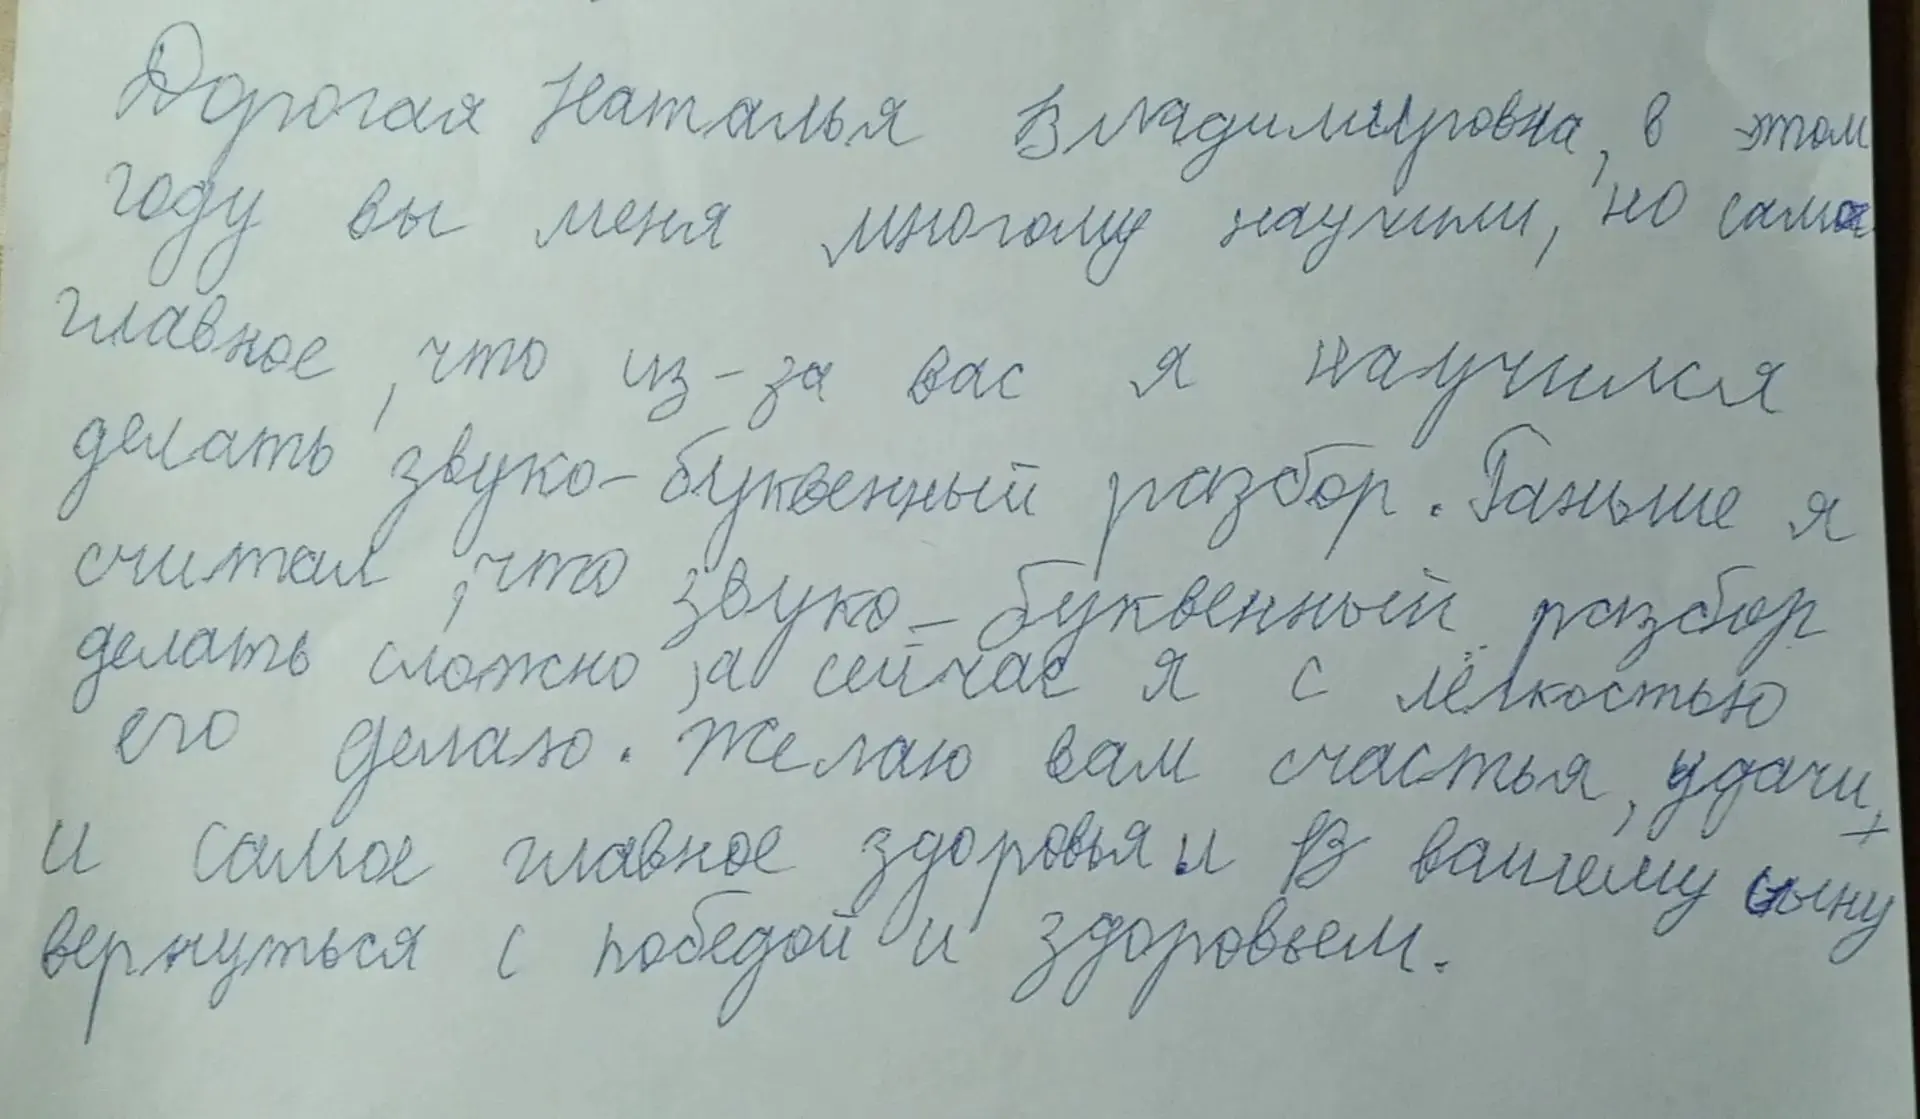 Дорогая Наталья Владимировна, в этом
году вы меня многому научили, но самое
главное, что из-за вас я научился
делать звуко-буквенный разбор. Раньше я
считал, что звуко-буквенный разбор
делать сложно, а сейчас я с лёгкостью
его делаю. Желаю вам счастья, удачи,
и самое главное здоровья и В вашему сыну
вернуться с победой и здоровьем.